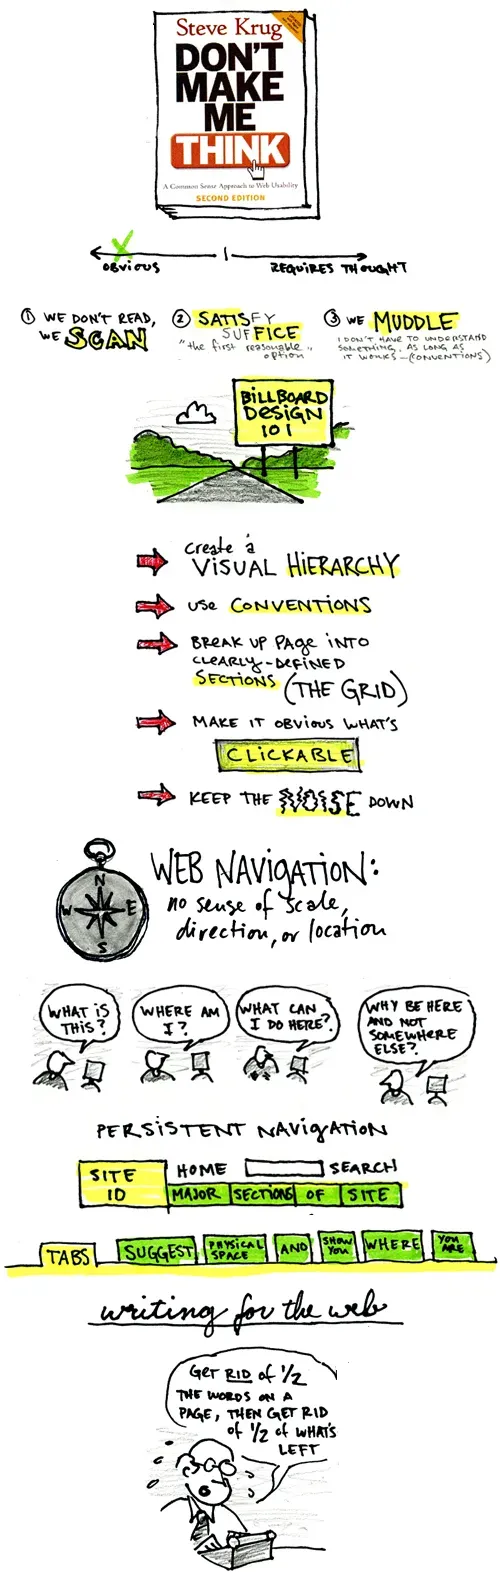 Steve Krug
DON'T
MAKE
ME
THINK
A Common Sense Approach to Web Usability
SECOND EDITION
OBVIOUS
REQUIRES THOUGHT
① WE DON'T READ,
WE SCAN
② SATISFY
SUFFICE
"the first reasonable"
option
③ WE MUDDLE
I DON'T HAVE TO UNDERSTAND
SOMETHING, AS LONG AS
IT WORKS - (CONVENTIONS)
BILLBOARD
DESIGN
101
create a
VISUAL HIERARCHY
USE CONVENTIONS
BREAK UP PAGE INTO
CLEARLY-DEFINED
SECTIONS (THE GRID)
MAKE IT OBVIOUS WHAT'S
CLICKABLE
KEEP THE NOISE DOWN
N
W E
S
WEB NAVIGATION:
no sense of scale,
direction, or location
WHAT IS
THIS?
WHERE AM
I?
WHAT CAN
I DO HERE?
WHY BE HERE
AND NOT
SOMEWHERE
ELSE?
PERSISTENT NAVIGATION
SITE
ID
HOME SEARCH
MAJOR SECTIONS OF SITE
TABS SUGGEST PHYSICAL SPACE AND SHOW YOU WHERE YOU ARE
writing for the web
GET RID of 1/2
THE WORDS ON A
PAGE, THEN GET RID
of 1/2 of WHAT'S
LEFT